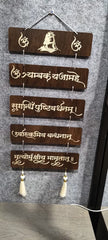 ॐ ॐ
ॐ त्र्यम्बकं यजामहे
सुगन्धिं पुष्टिवर्धनम्
उर्वारुकमिव बन्धनान्
मृत्योर्मुक्षीय मामृतात्